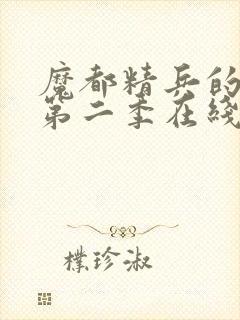 魔都精兵的
第二季在线
樸珍淑